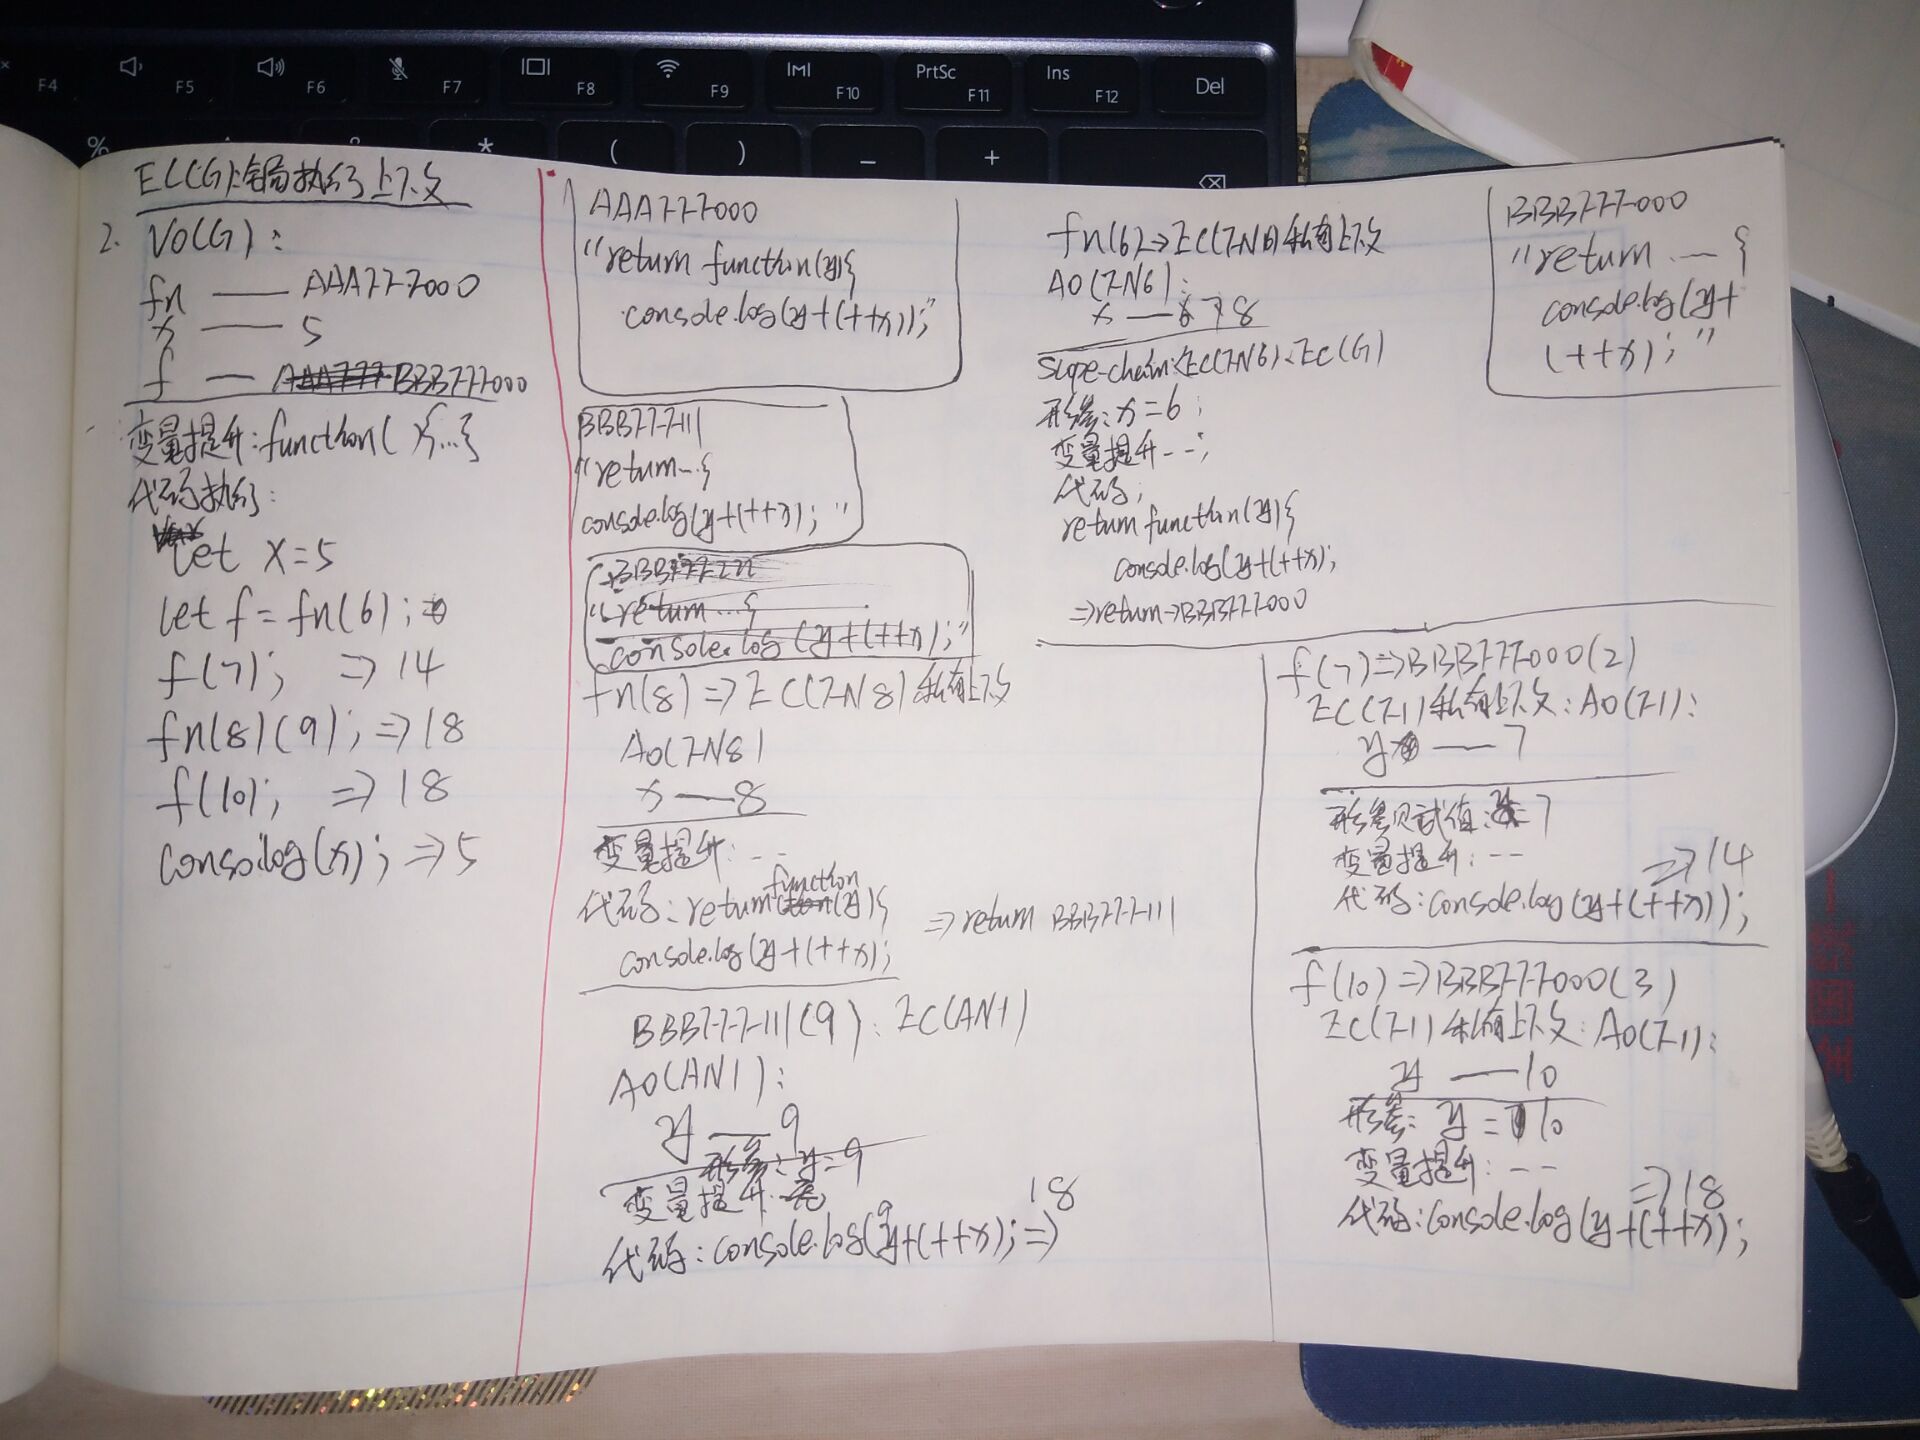 F4
F5
F6
F7
F8
F9
F10
PrtSc
F11
Ins
F12
Del
%
*
(
)
_
+
EC(G):全局执行上下文
2. VO(G):
fn —— AAA777000
x —— 5
f — BBB777000
变量提升:function( x...}
代码执行:
let x=5
let f = fn(6);
f(7); => 14
fn(8)(9); => 18
f(10); => 18
consolog(x); => 5
AAA777000
"return function(y){
console.log(y+(++x));"
BBB777111
"return...{
console.log(y+(++x); "
BBB777222
"return ...{
console.log (y+(++x);"
fn(8) => EC(FN8) 私有上下文
AO(FN8)
x —— 8
变量提升: --
代码: return function(y){
console.log(y+(++x);
=> return BBB777111
BBB777111(9): EC(AN1)
AO(AN1):
y —— 9
形参: y=9
变量提升:
代码: console.log(y+(++x); =>
9
18
fn(6) => EC(FN6) 私有上下文
AO(FN6):
x — 6 7 8
Scope-chain:<EC(FN6),EC(G)
形参: x=6;
变量提升--;
代码;
return function(y){
console.log(y+(++x);
=>return->BBB777000
BBB777000
"return ... {
console.log(y+
(++x); "
f(7) => BBB777000(2)
EC(F1) 私有上下文: AO(F1):
y —— 7
形参赋值: = 7
变量提升: --
=> 14
代码: console.log(y+(++x));
f(10) => BBB777000(3)
EC(F1) 私有上下文: AO(F1):
y —— 10
形参: y = 10
变量提升: --
=> 18
代码: console.log(y+(++x);